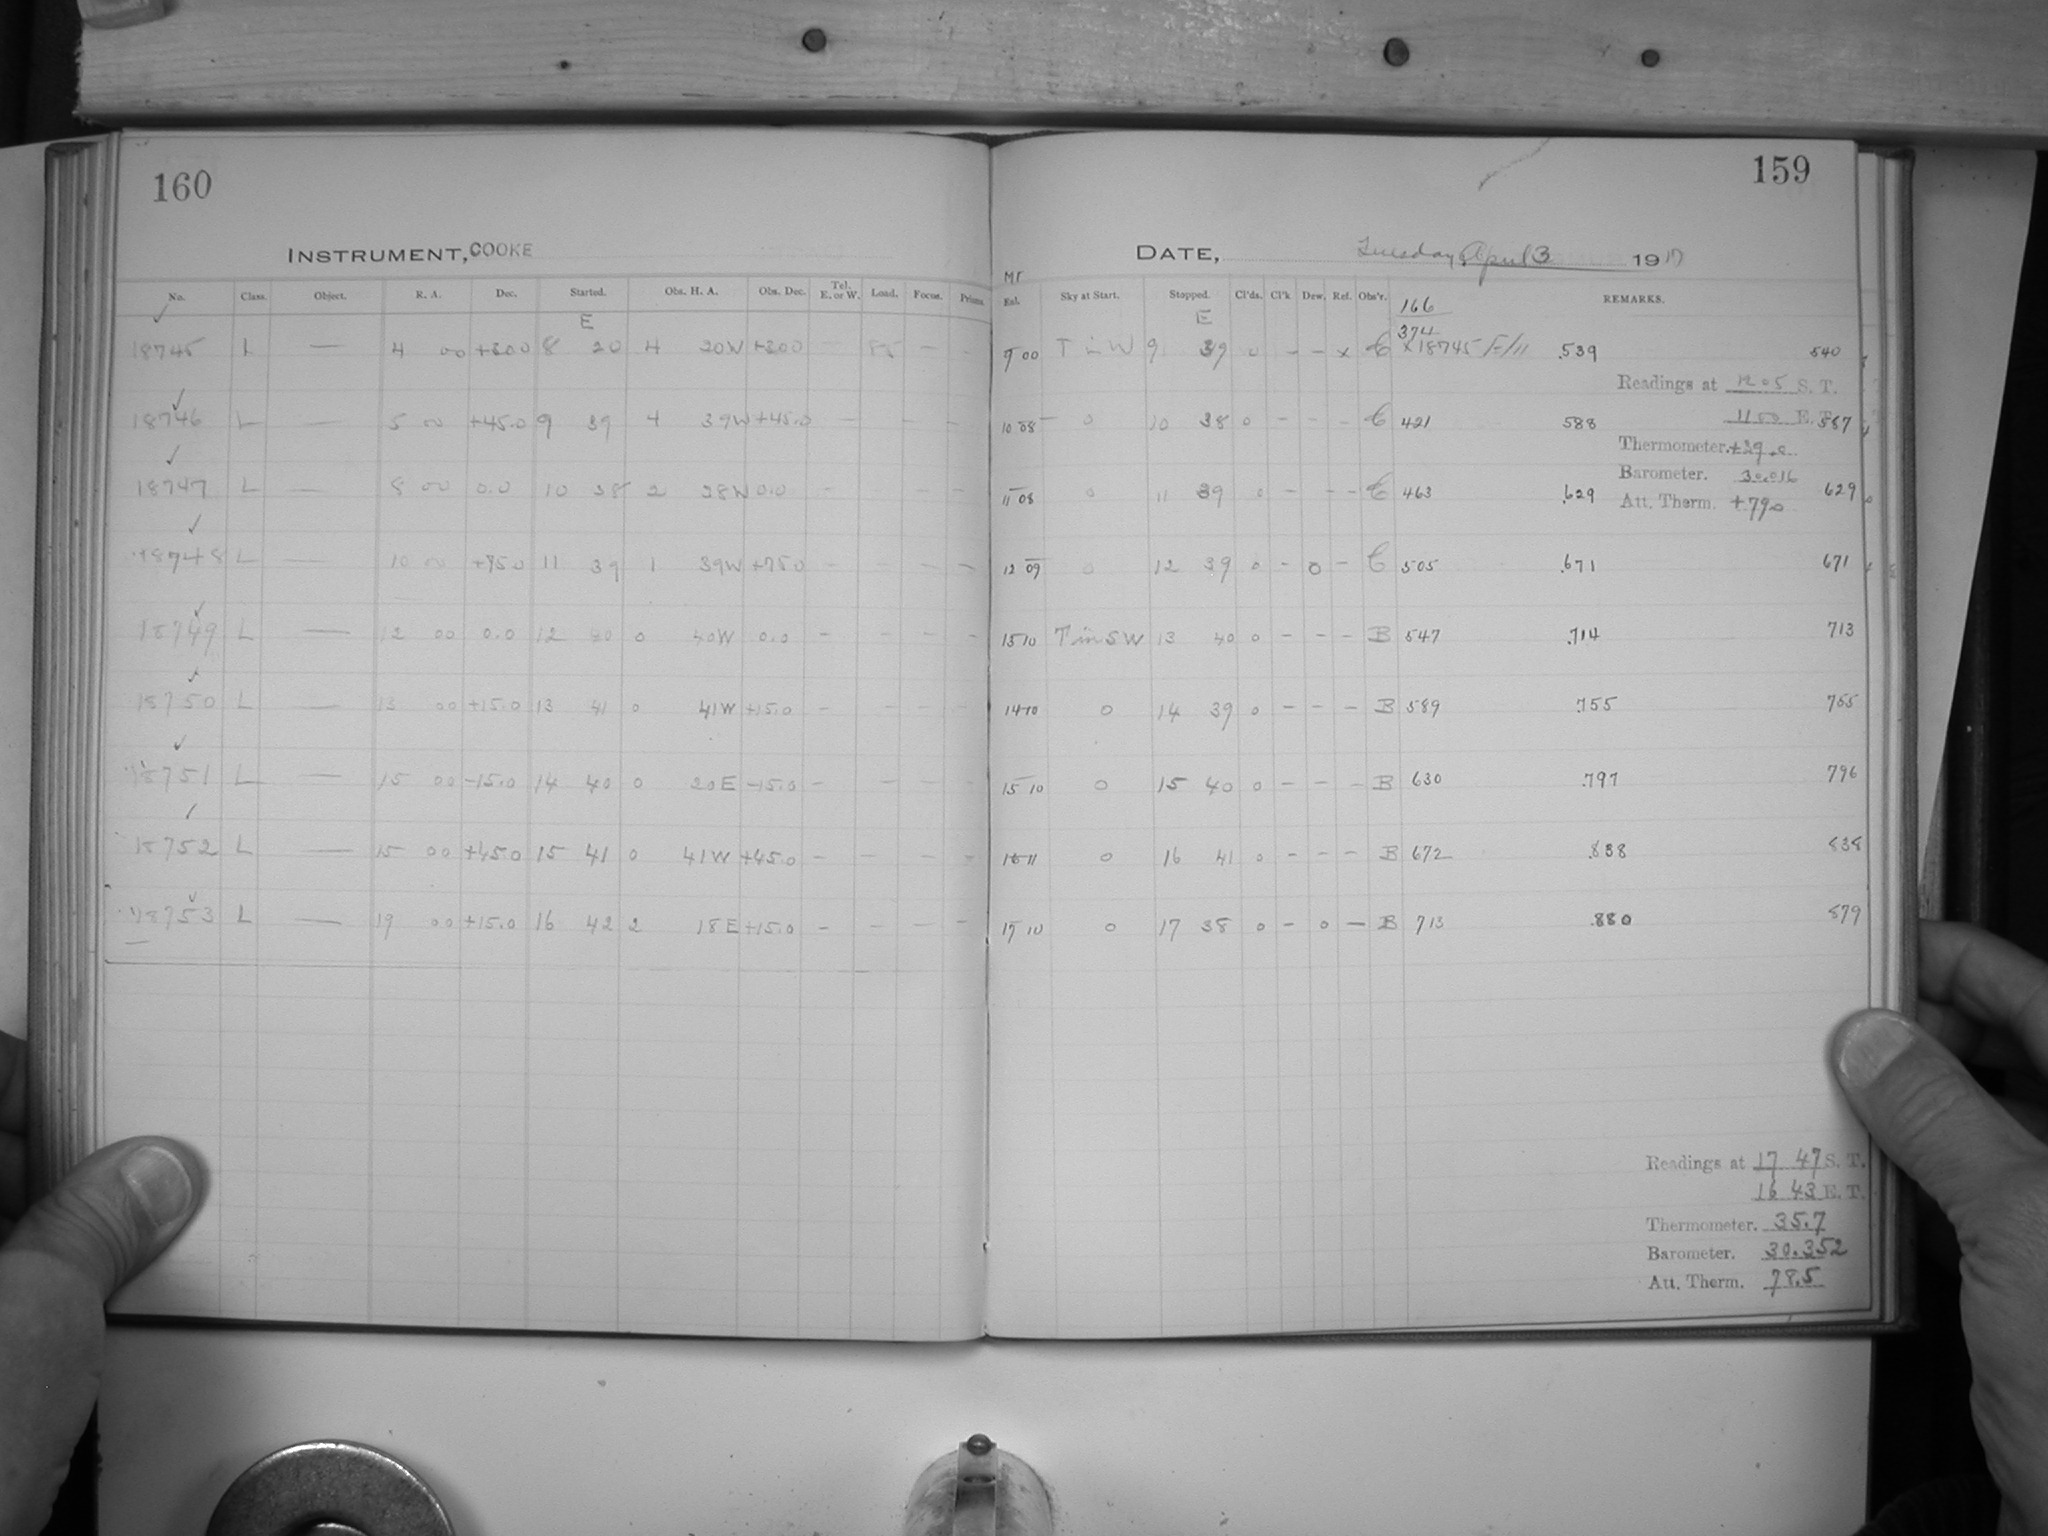 160
INSTRUMENT, COOKE
No. Class. Object. R. A. Dec. Started. Obs. H. A. Obs. Dec. Tel. E. or W. Load. Focus. Prisms.
E
18745 L — 4 00 +30.0 8 20 4 20W +30.0 — 85 — —
18746 L — 5 00 +45.0 9 39 4 39W +45.0 — — — —
18747 L — 8 00 0.0 10 38 2 38W 0.0 — — — —
18748 L — 10 00 +75.0 11 39 1 39W +75.0 — — — —
18749 L — 12 00 0.0 12 40 0 40W 0.0 — — — —
18750 L — 13 00 +15.0 13 41 0 41W +15.0 — — — —
18751 L — 15 00 -15.0 14 40 0 20E -15.0 — — — —
18752 L — 15 00 +45.0 15 41 0 41W +45.0 — — — —
18753 L — 19 00 +15.0 16 42 2 18E +15.0 — — — —
159
DATE, Tuesday April 3 1917
Ml
Eal. Sky at Start. Stopped. Cl'ds. Cl'k Dew. Ref. Obs'r. REMARKS.
166
E
374
9 00 T in W 9 39 0 — — x C x18745 F/11 .539 540
Readings at 12 05 S. T.
11 00 E. T.
10 08 0 10 38 0 — — — C 421 588 587
Thermometer. +39.0
Barometer. 30.016
11 08 0 11 39 0 — — — C 463 .629 629
Att. Therm. +79.0
12 09 0 12 39 0 — 0 — C 505 .671 671
13 10 T in SW 13 40 0 — — — B 547 .714 713
14 10 0 14 39 0 — — — B 589 .755 755
15 10 0 15 40 0 — — — B 630 .797 796
16 11 0 16 41 0 — — — B 672 .838 838
17 10 0 17 38 0 — 0 — B 713 .880 879
Readings at 17 47 S. T.
16 43 E. T.
Thermometer. 35.7
Barometer. 30.352
Att. Therm. 78.5